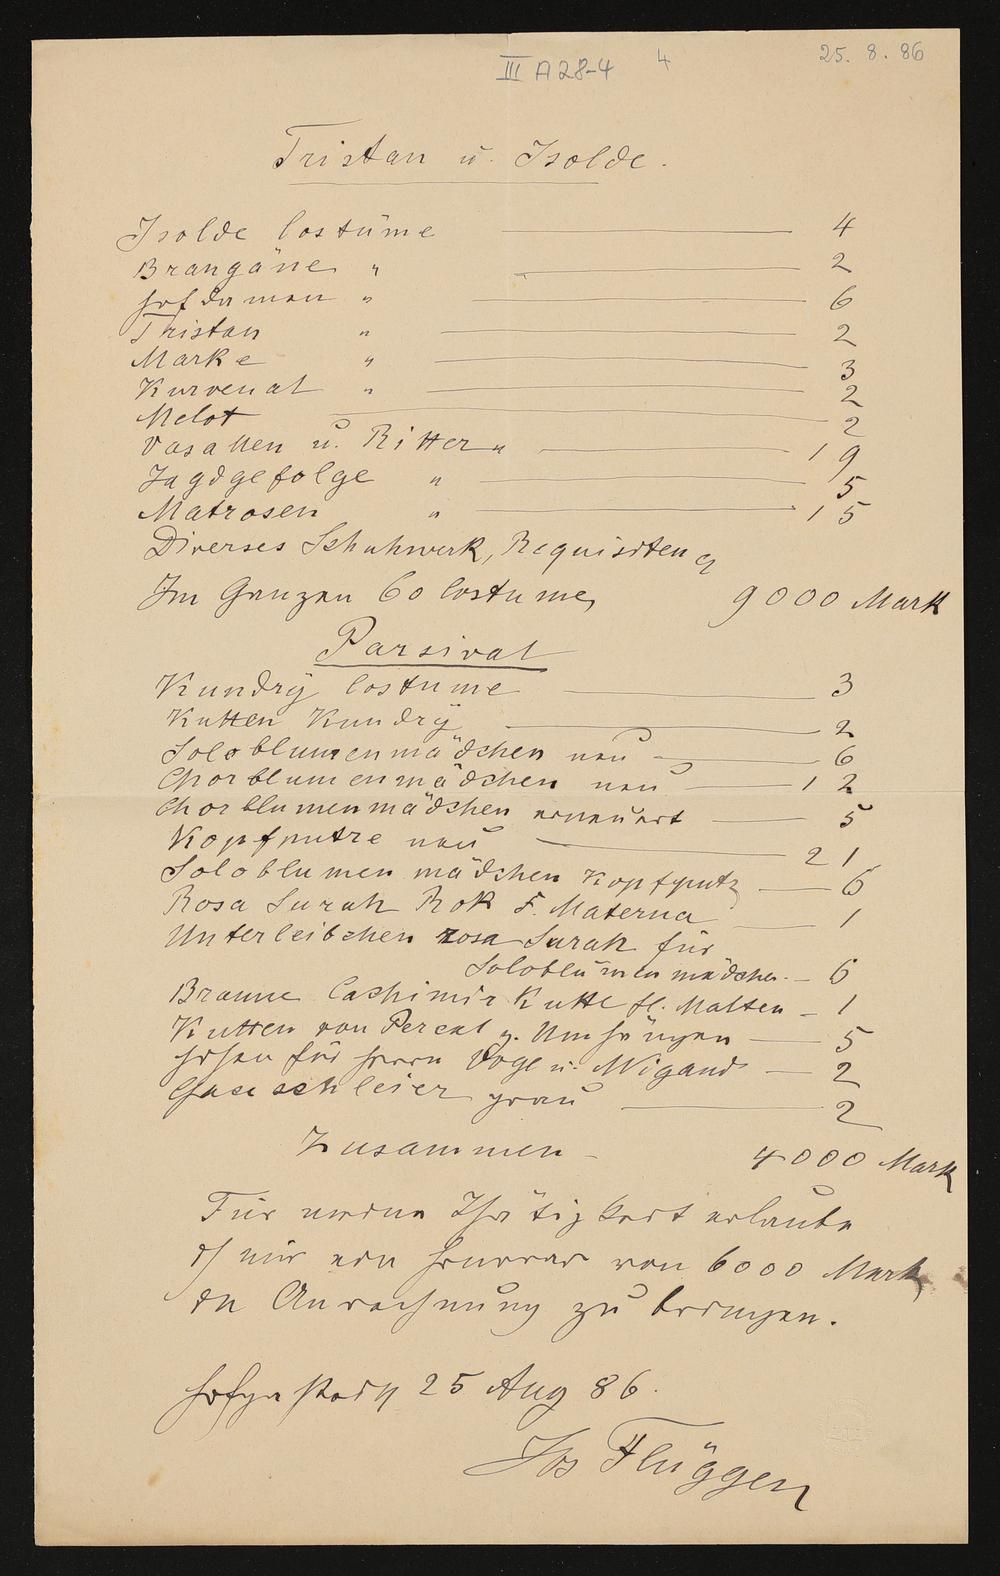 III A 28-4
4
25. 8. 86
Tristan u. Isolde.
Isolde Costüme 4
Brangäne " 2
Hofdamen " 6
Tristan " 2
Marke " 3
Kurvenal " 2
Melot 2
Vasallen u. Ritter " 19
Jagdgefolge " 5
Matrosen " 15
Diverses Schuhwerk, Requisiten
Im Ganzen 60 Costüme, 9000 Mark
Parsival
Kundrÿ Costume 3
Kutten Kundrÿ 2
Soloblumenmädchen neu 6
Chorblumenmädchen neu 12
Chorblumenmädchen erneuert 5
Kopfputze neu 21
Soloblumenmädchen Kopfputz 6
Rosa Surah Rok F. Materna 1
Unterleibchen rosa Surah für
Soloblumenmädchen - 6
Braune Cachimir Kutte fl. Malten - 1
Kutten von Percal z. Umhängen 5
Hosen für Herrn Vogl u. Wigand 2
Gaseschleier grau 2
Zusammen - 4000 Mark
Für meine Thätigkeit erlaube
ich mir ein Honorar von 6000 Mark
in Anrechnung zu bringen.
25 Aug 86.
Jos Flüggen